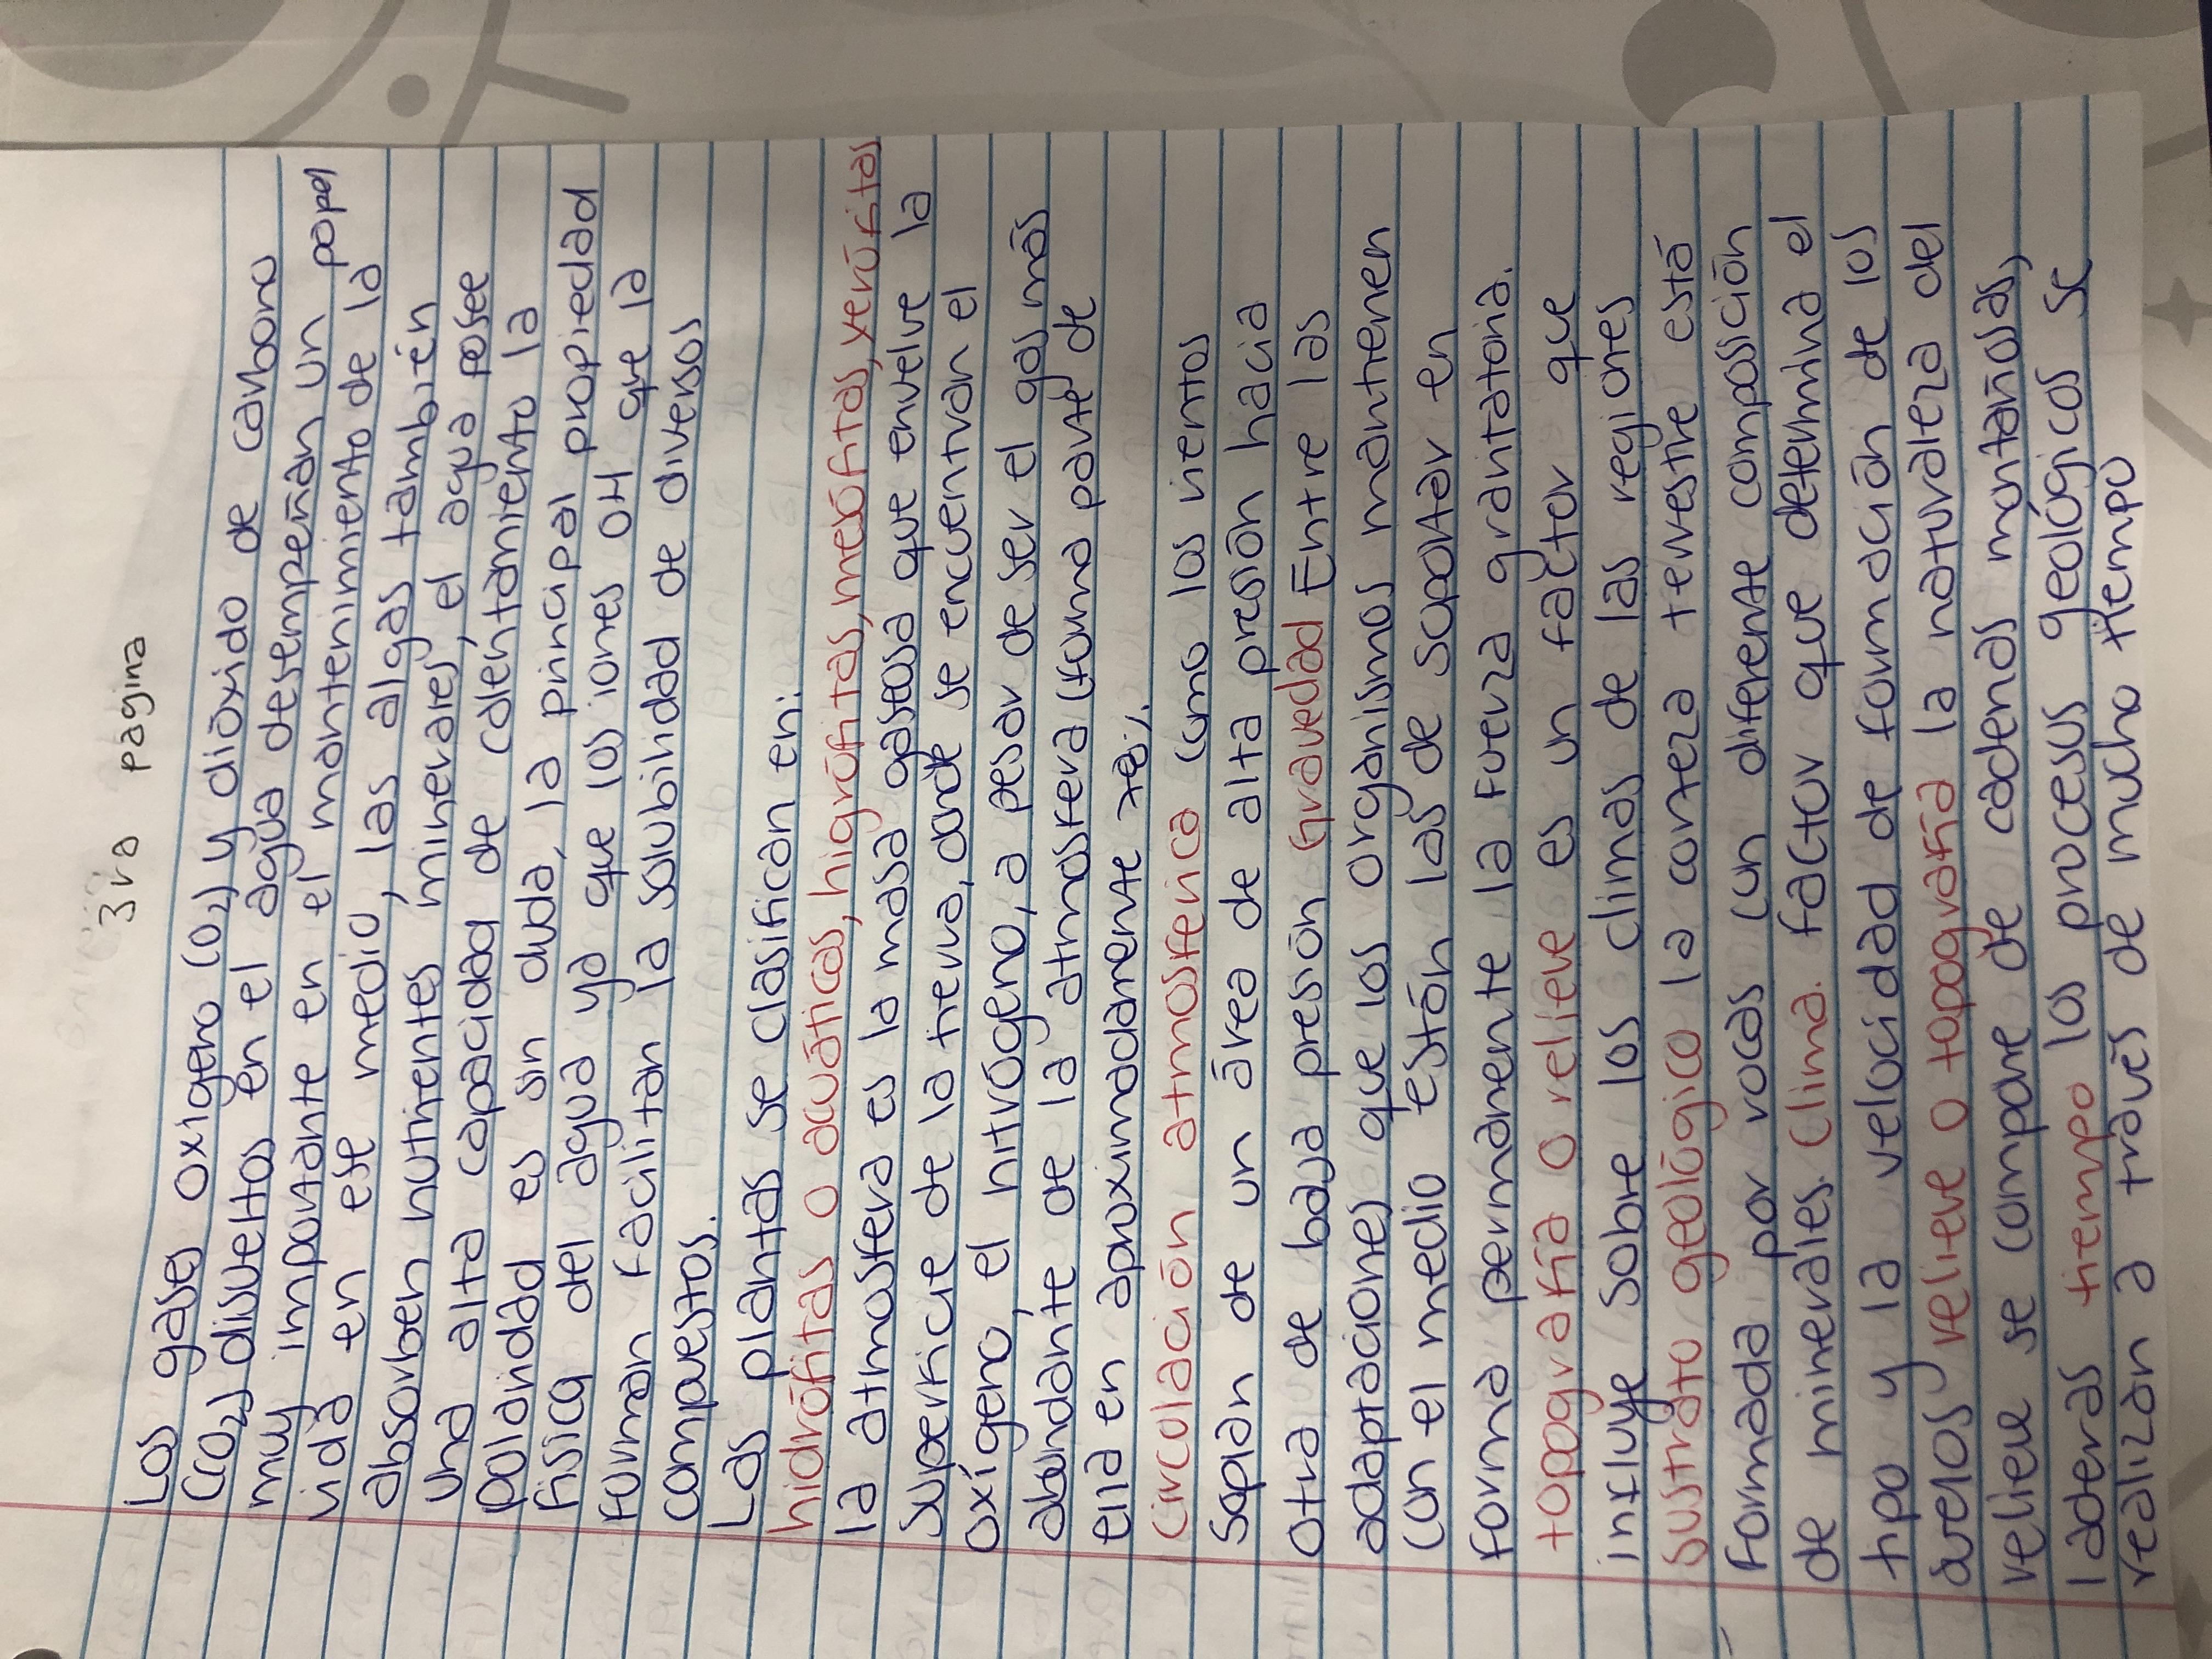 3ra pagina
Los gases oxigeno (O₂) y dióxido de carbono
(CO₂) disueltos en el agua desempeñan un papel
muy importante en el mantenimiento de la
vida en ese medio, las algas también
absorben nutrientes minerales, el agua posee
una alta capacidad de calentamiento la
polaridad es sin duda, la principal propiedad
física del agua ya que los iones OH que la
forman facilitan la solubilidad de diversos
compuestos.
Las plantas se clasifican en:
hidrófitas o acuáticas, higrófitas, mesófitas, xerófitas
la atmosfera es la masa gaseosa que envelve la
superficie de la tierra, donde se encuentran el
oxígeno, el nitrógeno, a pesar de ser el gas más
abundante de la atmosfera (forma parte de
ella en aproximadamente 78%.
Circulación atmosferica como los vientos
soplan de un área de alta presión hacia
otra de baja presión Gravedad Entre las
adaptaciones que los organismos mantienen
con el medio están las de soportar en
forma permanente la fuerza gravitatoria.
topografia o relieve es un factor que
influye sobre los climas de las regiones
Sustrato geológico la corteza terrestre está
formada por rocas con diferente composición
de minerales. Clima. factor que determina el
tipo y la velocidad de formación de los
suelos relieve o topografia la naturaleza del
relieve se compone de cadenas montañosas,
laderas tiempo los procesos geológicos se
realizan a través de mucho tiempo